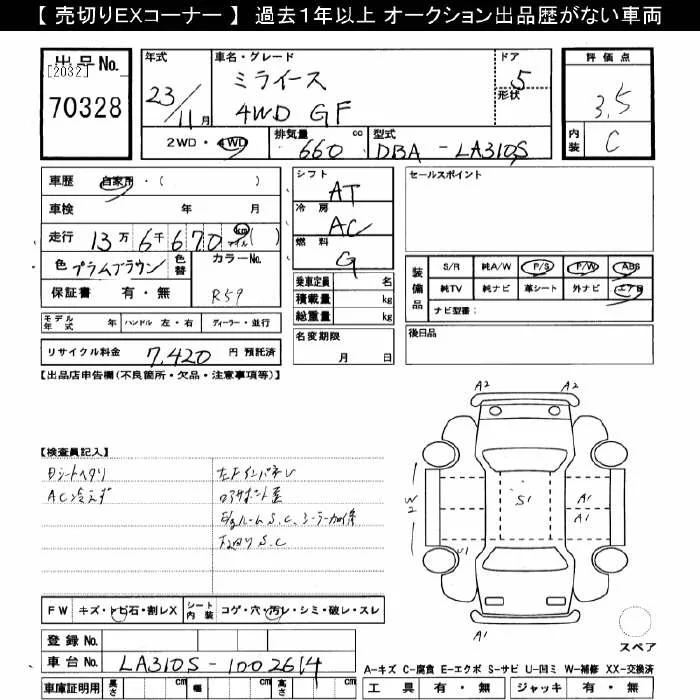 【 売切りEXコーナー 】 過去1年以上 オークション出品歴がない車両
出品No.
[2032]
70328
年式
23/11月
車名・グレード
ミライース
4WD GF
ドア
5
形状
評価点
3.5
内装
C
2WD・4WD
排気量
660 cc
型式
DBA - LA310S
車歴 自家用・( )
車検 年 月
走行 13万6千670 km マイル ( )
色 プラムブラウン
色替
カラーNo.
R59
保証書 有・無
シフト
AT
冷房
AC
燃料
G
乗車定員 名
積載量 kg
総重量 kg
名変期限
月 日
セールスポイント
装備品
S/R 純A/W P/S P/W ABS
純TV 純ナビ 革シート 外ナビ エアB
ナビ型番:
後日品
モデル年式 年 ハンドル 左・右 ディーラー・並行
リサイクル料金 7,420 円 預託済
【出品店申告欄(不良箇所・欠品・注意事項等)】
【検査員記入】
Dシートヘタリ
AC冷えず
左Fインパネ
S.C、シーラー
下回りS.C
A2 A2
W2
S1
A1
A1
U1
A1
スペア
FW キズ・トビ石・割レX
シート内装 コゲ・穴・汚レ・シミ・破レ・スレ
登録No.
車台No. LA310S-1002614
車庫証明用 長さ cm 幅 cm 高さ cm
A-キズ C-腐食 E-エクボ S-サビ U-凹ミ W-補修 XX-交換済
工具 有・無 ジャッキ 有・無